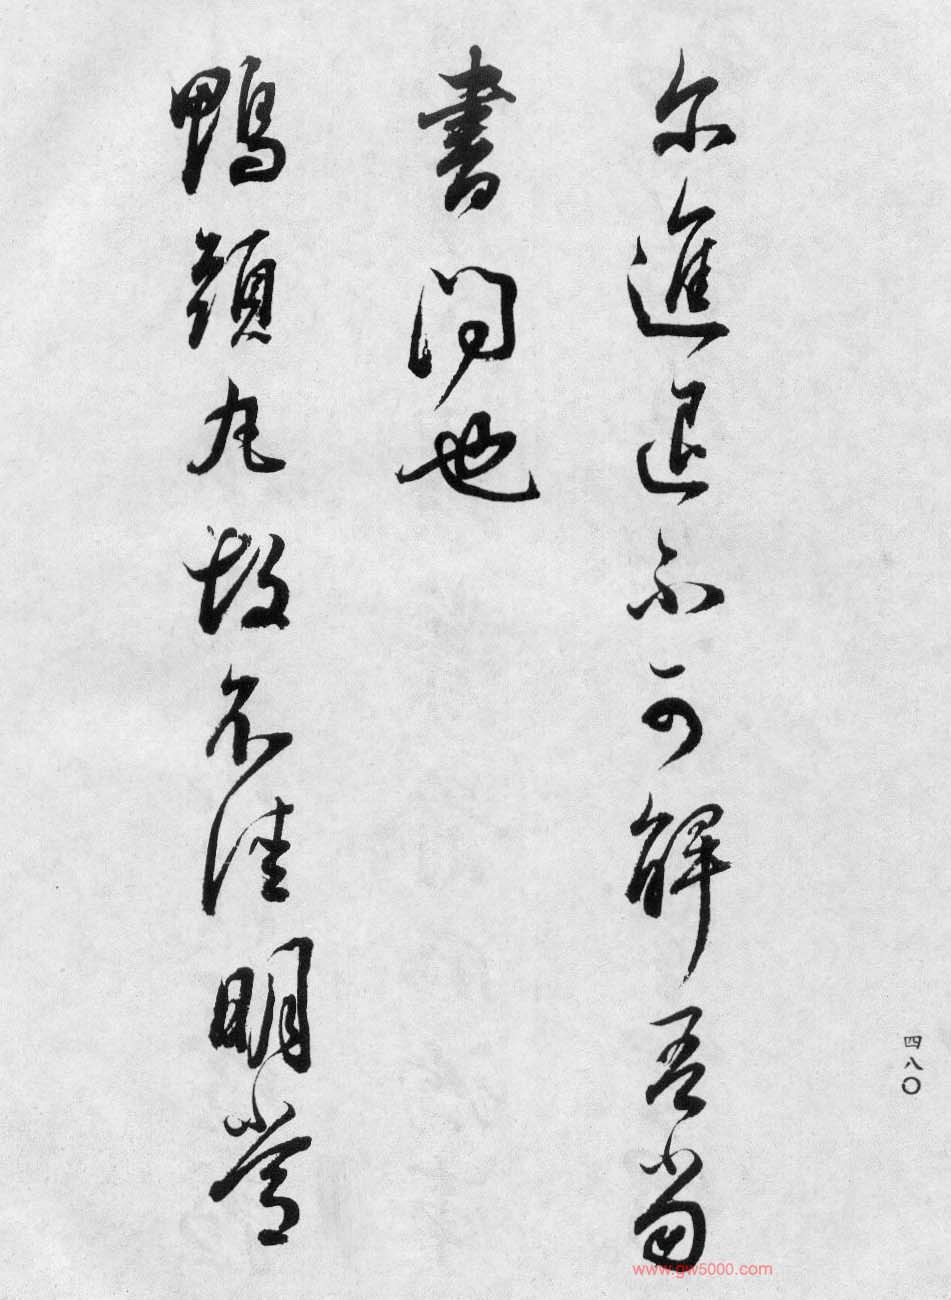 尓進退不可解吾當
書問也
鴨頭丸故不佳明當
四八〇
www.gw5000.com